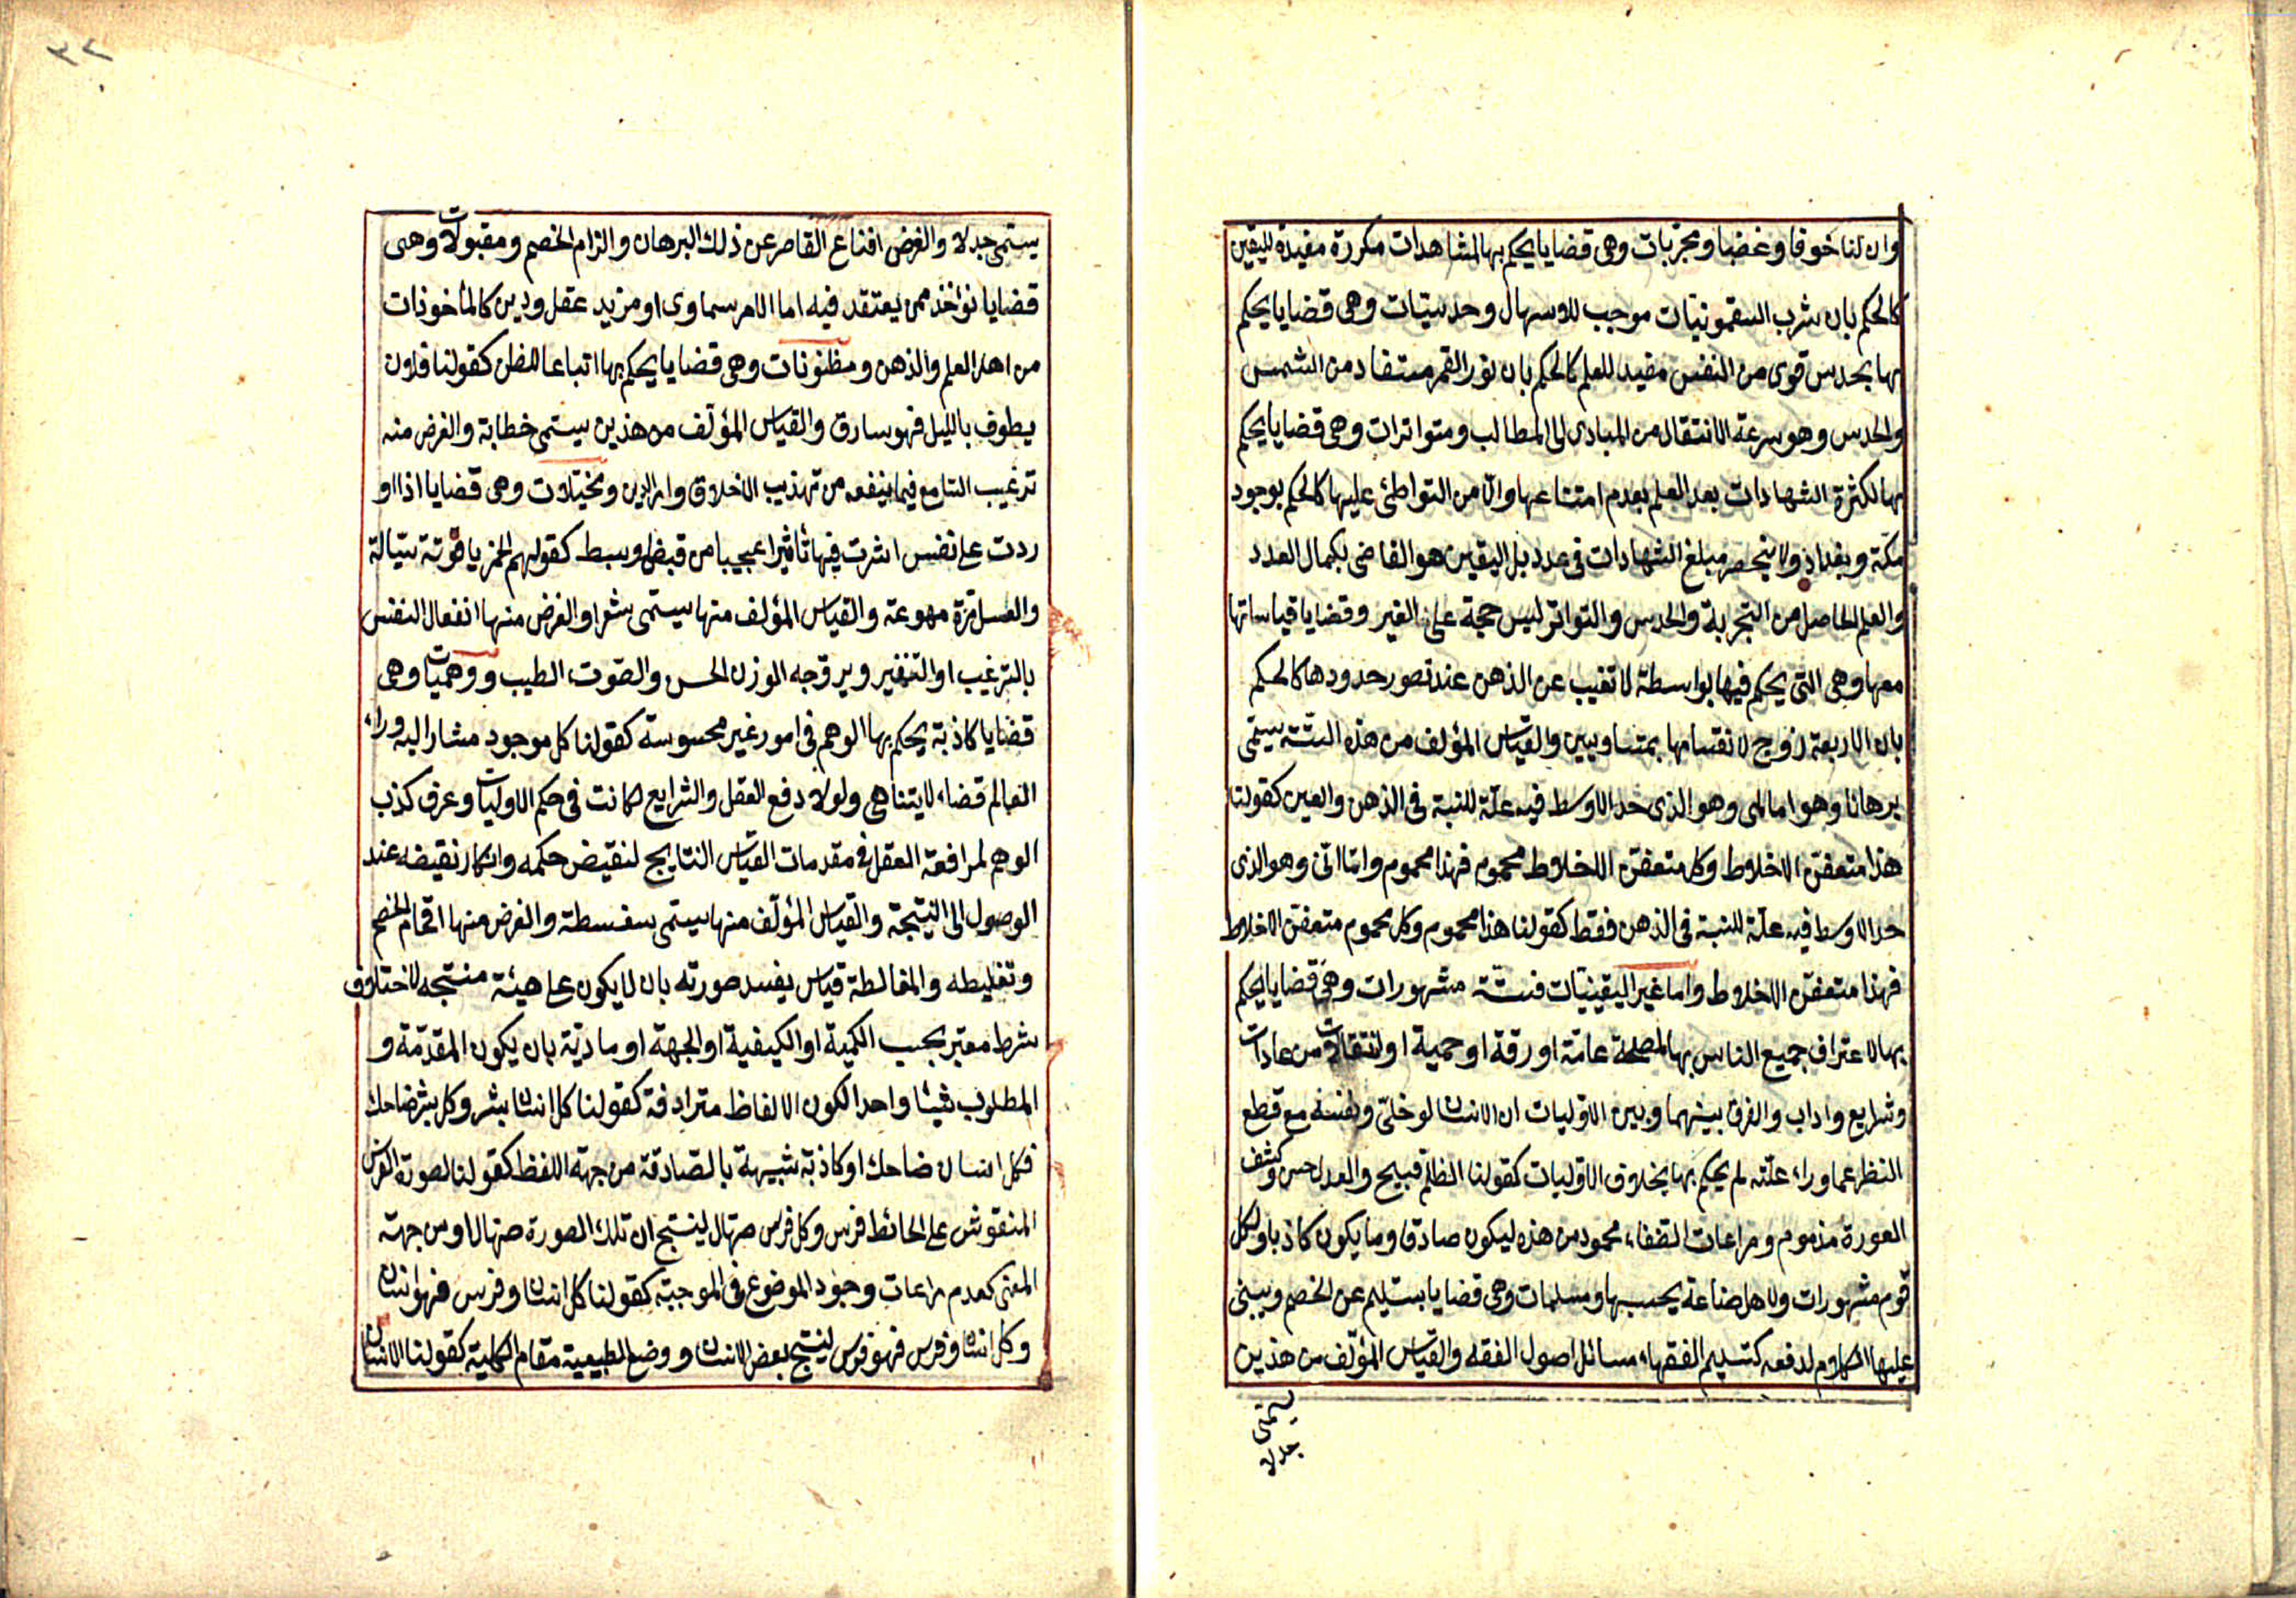 وان لنا خوفا وغضبا ومجربات وهى قضايا يحكم بها لمشاهدات مكررة مفيدة لليقين
كالحكم بان شرب السقمونيات موجب للاسهال وحدسيات وهى قضايا يحكم
بها بحدس قوى من النفس مفيد للعلم كالحكم بان نور القمر مستفاد من الشمس
والحدس وهو سرعة الانتقال من المبادى الى المطالب ومتواترات وهى قضايا يحكم
بها لكثرة الشهادات بعد العلم بعدم امتناعها والامن التواطئ عليها كالحكم بوجود
مكة وبغداد ولا ينحصر مبلغ الشهادات فى عدد بل اليقين هو القاضى بكمال العدد
والعلم الحاصل من التجربة والحدس والتواتر ليس حجة على الغير وقضايا قياساتها
معها وهى التى يحكم فيها بواسطة لا تغيب عن الذهن عند تصور حدودها كالحكم
بان الاربعة زوج لانقسامها بمتساويين والقياس المؤلف من هذه الستة يسمى
برهانا وهو اما لمى وهو الذى حد الاوسط فيه علة للنسبة فى الذهن والعين كقولنا
هذا متعفن الاخلاط وكل متعفن الاخلاط محموم فهذا محموم واما انى وهو الذى
حد الاوسط فيه علة للنسبة فى الذهن فقط كقولنا هذا محموم وكل محموم متعفن الاخلاط
فهذا متعفن الاخلاط واما غير اليقينيات فستة مشهورات وهى قضايا يحكم
بها لاعتراف جميع الناس بها لمصلحة عامة او رقة او حمية او انتقالات من عادات
وشرايع واداب والفرق بينهما وبين الاوليات ان الانسان لو خلى ونفسه مع قطع
النظر عما وراء علته لم يحكم بها بخلاف الاوليات كقولنا الظلم قبيح والعدل حسن وكشف
العورة مذموم ومراعات الضعفاء محمود من هذه ليكون صادقا وما يكون كاذبا ولكل
قوم مشهورات ولاهل صناعة يحسبها ومسلمات وهى قضايا بتسليم عن الخصم ويبنى
عليها الكلام لدفعه كتسليم الفقهاء مسائل اصول الفقه والقياس المؤلف من هذين
يسمى
جدلا
٣٢
يسمى جدلا والغرض اقناع القاصر عن ذلك البرهان والزام الخصم ومقبولات وهى
قضايا تؤخذ ممن يعتقد فيه اما الامر سماوى او مزيد عقل ودين كالمأخوذات
من اهل العلم والذهن ومظنونات وهى قضايا يحكم بها اتباعا للظن كقولنا فلان
يطوف بالليل فهو سارق والقياس المؤلف من هذين يسمى خطابة والغرض منه
ترغيب السامع فيما ينفعه من تهذيب الاخلاق وامر الدين ومخيلات وهى قضايا اذا او
ردت على نفس اثرت فيها تاثيرا عجيبا من قبض وبسط كقولهم الخمر ياقوتة سيالة
والعسل مرة مهوعة والقياس المؤلف منها يسمى شعرا والغرض منها انفعال النفس
بالترغيب او التنفير ويروجه الوزن الحسن والصوت الطيب ووهميات وهى
قضايا كاذبة يحكم بها الوهم فى امور غير محسوسة كقولنا كل موجود مشار اليه وراء
العالم فضاء لا يتناهى ولولا دفع العقل والشرايع لكانت فى حكم الاوليات وعرف كذب
الوهم لمرافعة العقل فى مقدمات القياس النتايج لنقيض حكمه وانكار نقيضه عند
الوصول الى النتيجة والقياس المؤلف منها يسمى سفسطة والغرض منها افحام الخصم
وتغليطه والمغالطة قياس يفسد صورته بان لا يكون على هيئة منتجه لاختلاف
شرط معتبر بحسب الكمية او الكيفية او الجهة او مادته بان يكون المقدمة و
المطلوب شيئا واحدا لكون الالفاظ مترادفة كقولنا كل انسان بشر وكل بشر ضاحك
فكل انسان ضاحك او كاذبة شبيهة بالصادقة من جهة اللفظ كقولنا لصورة الفرس
المنقوش على الحائط فرس وكل فرس صهال لينتج ان تلك الصورة صهال او من جهة
المعنى كعدم مراعات وجود الموضوع فى الموجبة كقولنا كل انسان وفرس فهو انسان
وكل انسان وفرس فهو فرس لينتج بعض الانسان ووضع الطبيعية مقام الكلية كقولنا الانسان